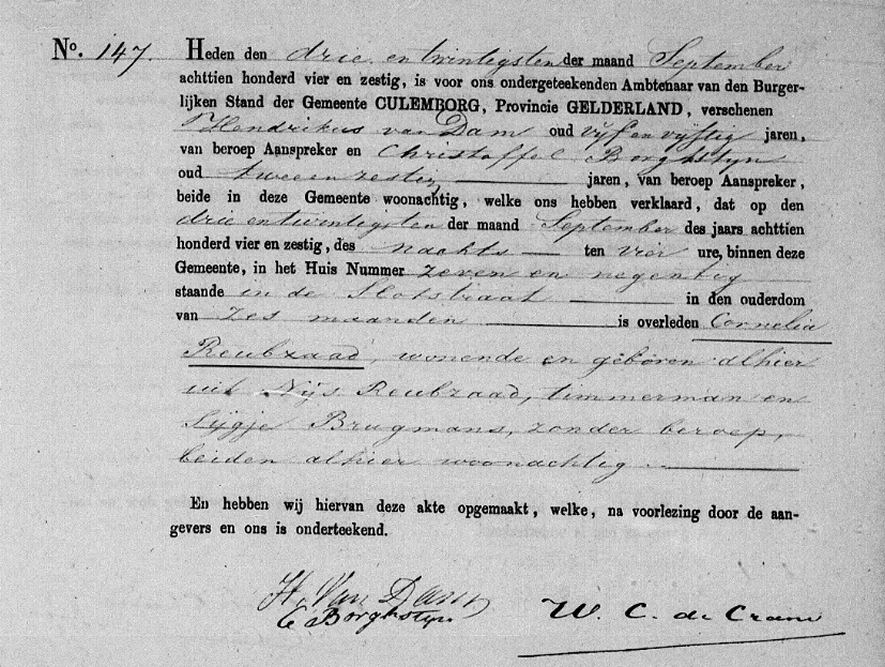 No. 147. Heden den drie en twintigsten der maand September
achttien honderd vier en zestig, is voor ons ondergeteekenden Ambtenaar van den Burger-
lijken Stand der Gemeente CULEMBORG, Provincie GELDERLAND, verschenen
Hendrikus van Dam oud vijf en vijftig jaren,
van beroep Aanspreker en Christoffel Borghstijn
oud twee en zestig jaren, van beroep Aanspreker,
beide in deze Gemeente woonachtig, welke ons hebben verklaard, dat op den
drie en twintigsten der maand September des jaars achttien
honderd vier en zestig, des nachts ten vier ure, binnen deze
Gemeente, in het Huis Nummer zeven en negentig
staande in de Slotstraat in den ouderdom
van zes maanden is overleden Cornelia
Reubzaad, wonende en geboren alhier
uit Nijs Reubzaad, timmerman en
Sijgje Brugmans, zonder beroep,
beiden alhier woonachtig.
En hebben wij hiervan deze akte opgemaakt, welke, na voorlezing door de aan-
gevers en ons is onderteekend.
H. Van Dam
C Borghstijn
W. C. de Crane